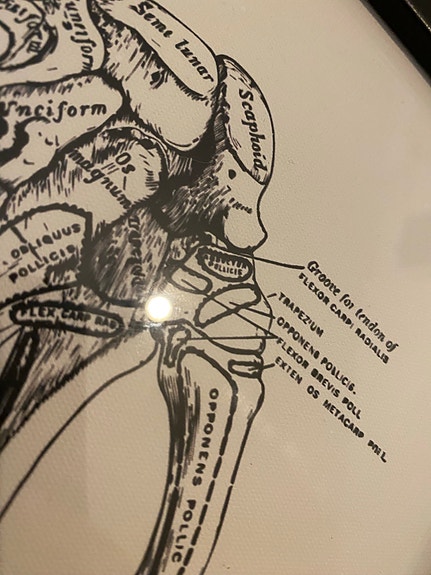 Cuneiform
Seme lunar
Scaphoid
Unciform
Os
magnum
OBLIQUUS
POLLICIS
ABDUCTOR
POLLICIS
FLEX CARP RAD
Groove for tendon of
FLEXOR CARPI RADIALIS
TRAPEZIUM
OPPONENS POLLICIS.
FLEXOR BREVIS POLL
EXTEN OS METACARP POLL
OPPONENS POLLIC